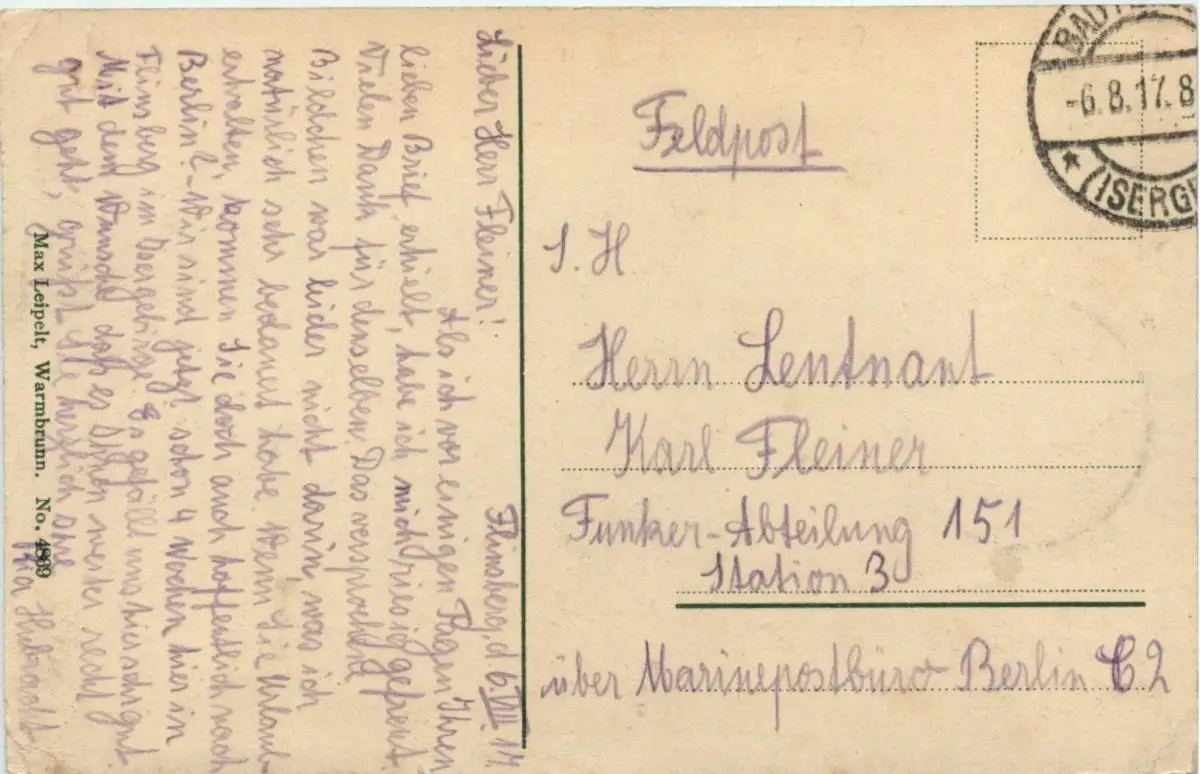 Flinsberg, d. 6.VIII.17.
Lieber Herr Fleiner!
Als ich vor einigen Tagen Ihren
lieben Brief erhielt, habe ich mich riesig gefreut.
Vielen Dank für denselben. Das versprochene
Bildchen war leider nicht darin, was ich
natürlich sehr bedauert habe. Wenn Sie Urlaub
erhalten, kommen Sie doch auch hoffentlich nach
Berlin? - Wir sind jetzt schon 4 Wochen hier in
Flinsberg im Isergebirge. Es gefällt uns hier sehr gut.
Mit dem Wunsche, daß es Ihnen weiter recht
gut geht, grüßt Sie herzlich Ihre
Max Leipelt, Warmbrunn. No. 4869
Feldpost
BAD
-6.8.17.8
(ISERGE
S. H.
Herrn Leutnant
Karl Fleiner
Funker-Abteilung 151
Station 3
über Marinepostbüro Berlin C2